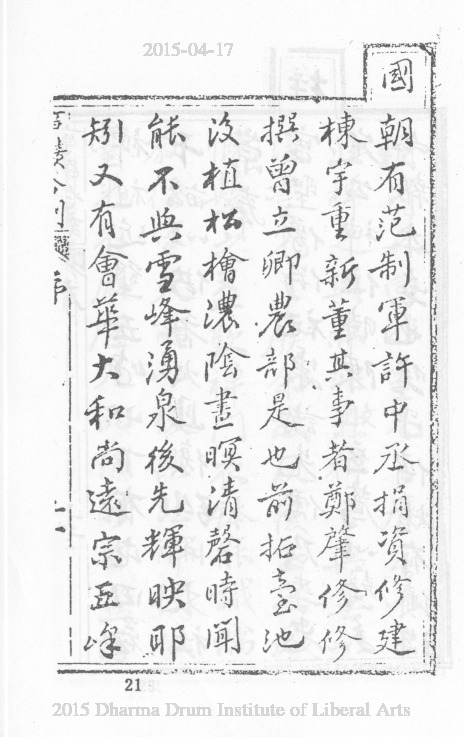 2015-04-17
國
朝有范制軍許中丞捐資修建
棟宇重新董其事者鄭肇修修
撰曾立卿農部是也前拓臺池
後植松檜濃陰晝暝清磬時聞
能不與雪峰湧泉後先輝映耶
矧又有會華大和尚遠宗五峰
序
21
2015 Dharma Drum Institute of Liberal Arts